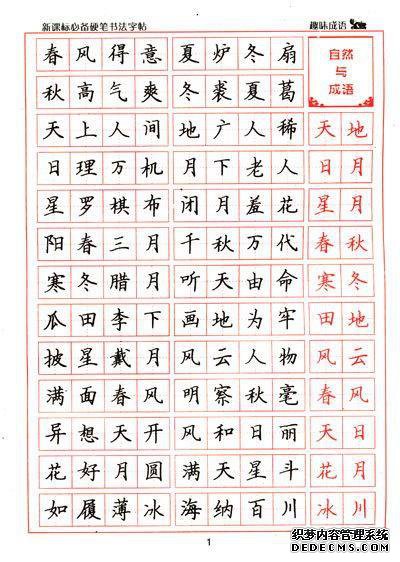 新课标必备硬笔书法字帖 趣味成语
春风得意 夏炉冬扇 自然
秋高气爽 冬裘夏葛 与
成语
天上人间 地广人稀 天地
日理万机 月下老人 日月
星罗棋布 闭月羞花 星月
阳春三月 千秋万代 春秋
寒冬腊月 听天由命 寒冬
瓜田李下 画地为牢 田地
披星戴月 风云人物 风云
满面春风 明察秋毫 春风
异想天开 风和日丽 天日
花好月圆 满天星斗 花月
如履薄冰 海纳百川 冰川
1
织梦内容管理系统
DEDECMS.COM